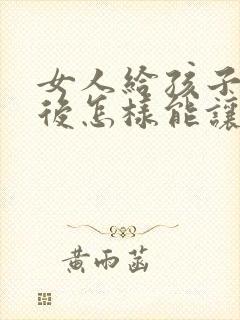 女人給孩子
後怎樣能讓
黃雨菡